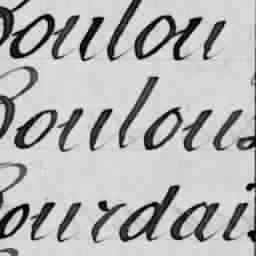 Boulou
Boulous
Bourdais